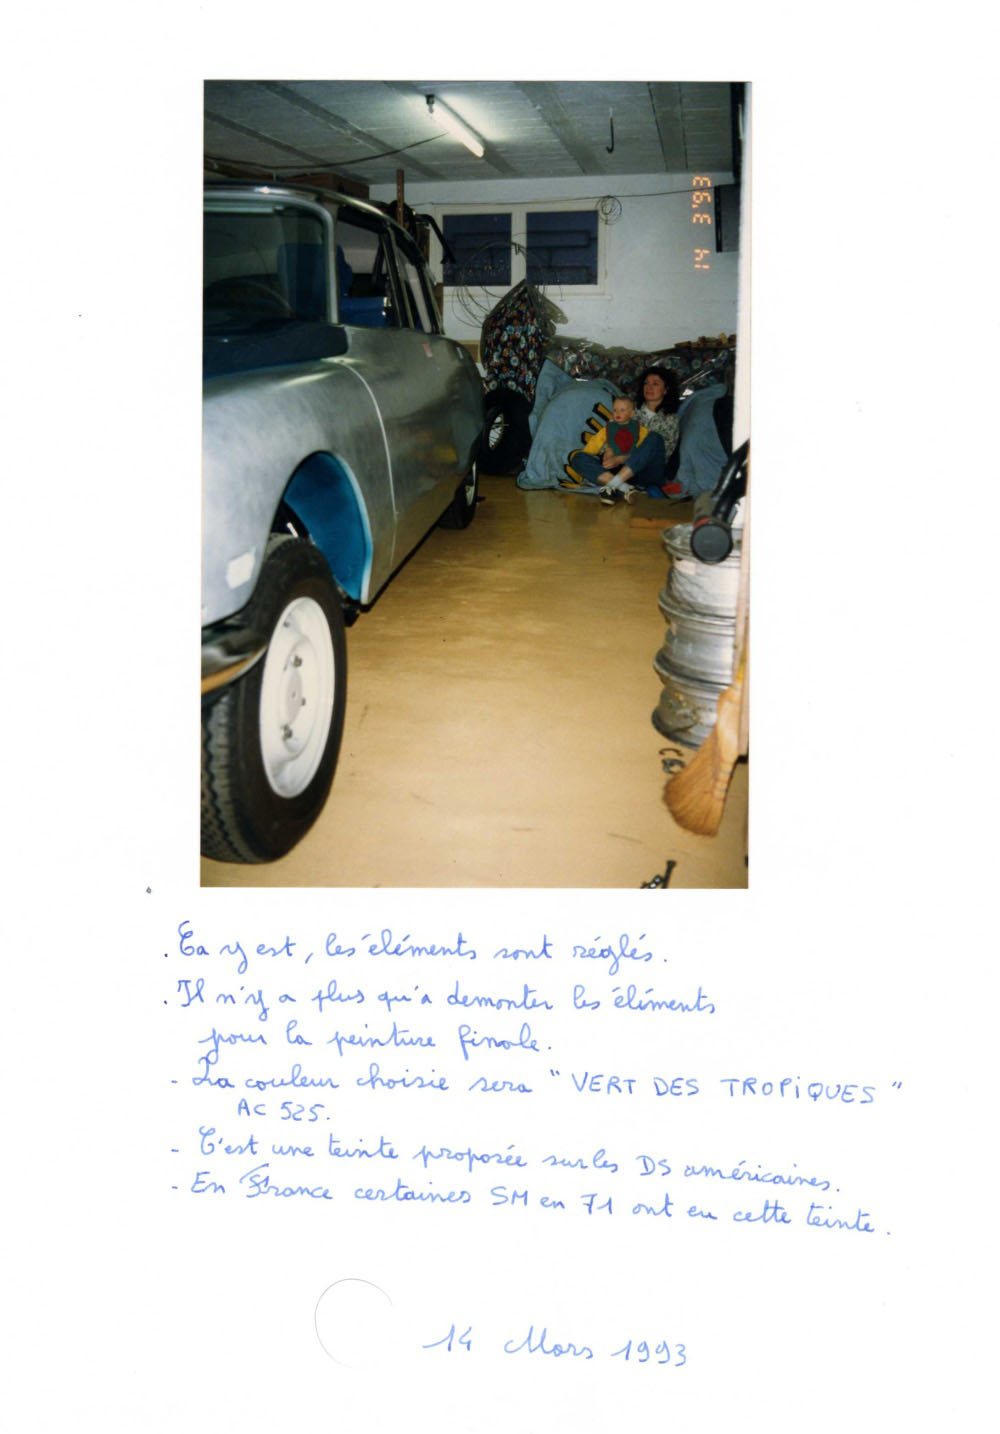 14 3 '93
. Ca y est, les éléments sont réglés.
. Il n'y a plus qu'a demonter les éléments
pour la peinture finale.
- La couleur choisie sera "VERT DES TROPIQUES"
AC 525.
- C'est une teinte proposée sur les DS américaines.
- En France certaines SM en 71 ont eu cette teinte.
14 Mars 1993